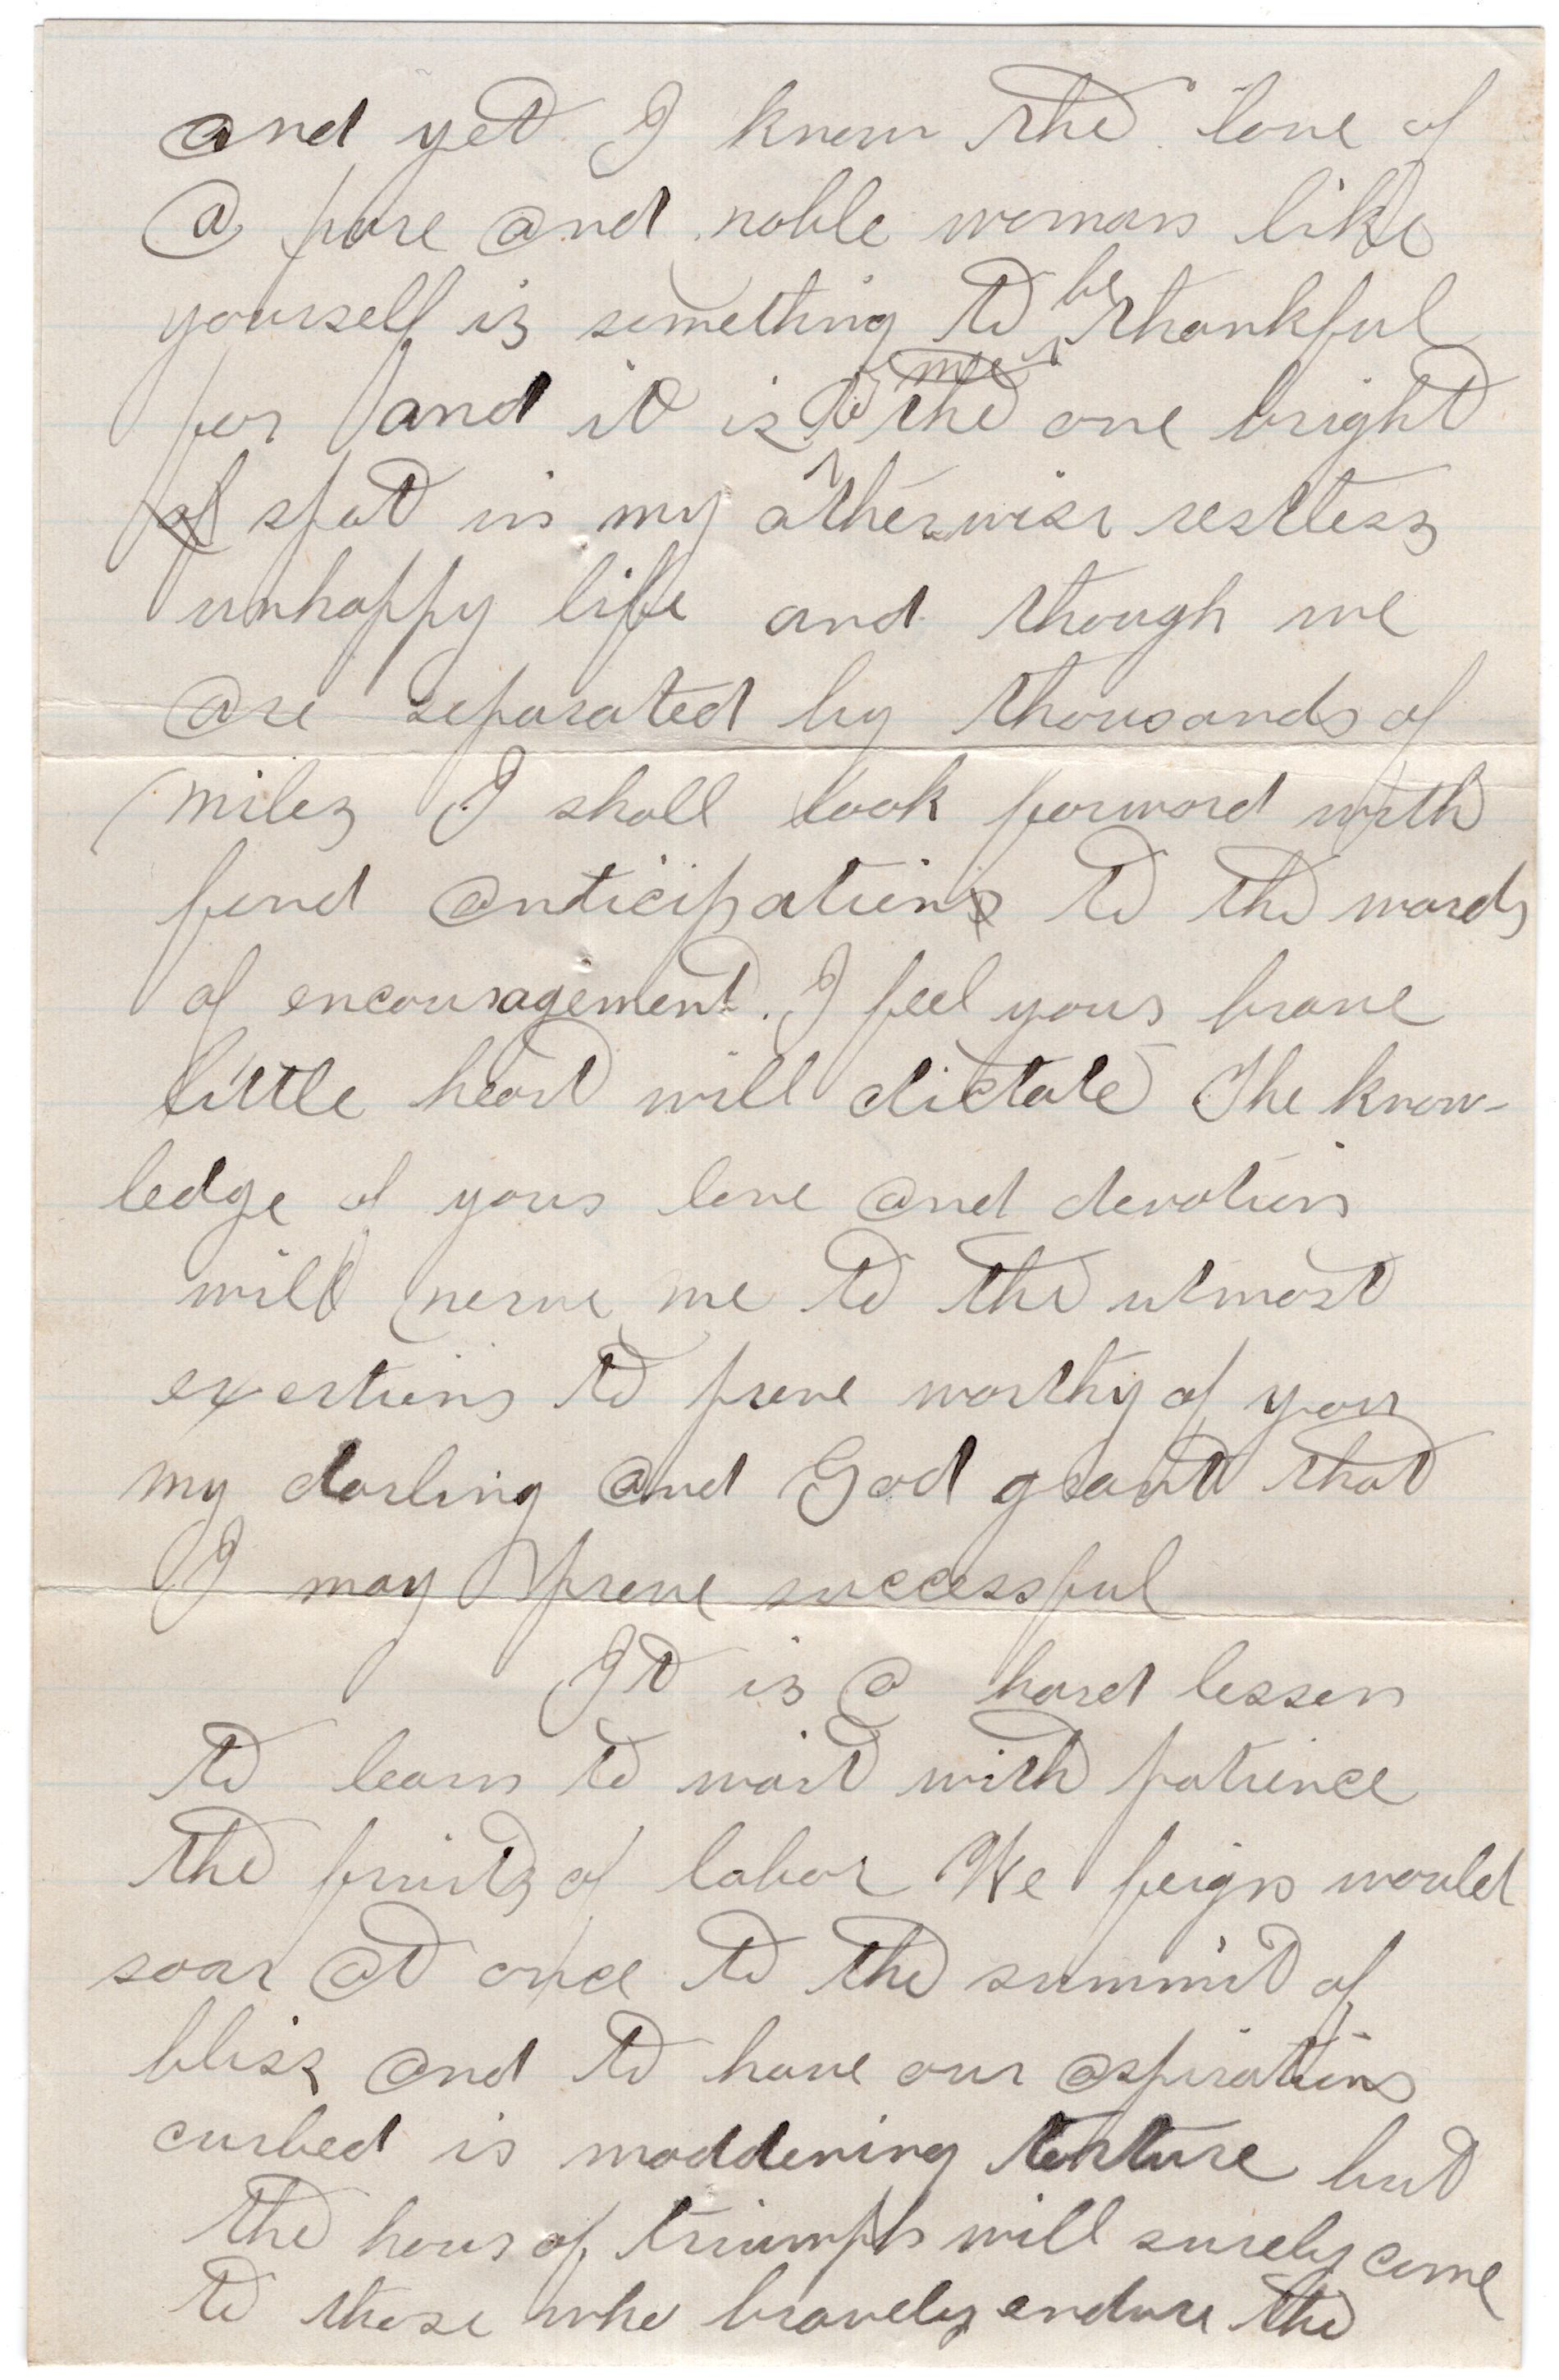 and yet I know the love of
a pure and noble woman like
yourself is something to be thankful
for and it is to me the one bright
of spot in my otherwise restless
unhappy life and though we
are separated by thousands of
miles I shall look forward with
fond anticipations to the words
of encouragement. I feel your brave
little heart will dictate The know-
ledge of your love and devotion
will nerve me to the utmost
exertions to prove worthy of you
my darling and God grant that
I may prove successful
It is a hard lesson
to learn to wait with patience
the fruits of labor We feign would
soar at once to the summit of
bliss and to have our aspirations
curbed is maddening torture but
the hour of triumph will surely come
to those who bravely endure the